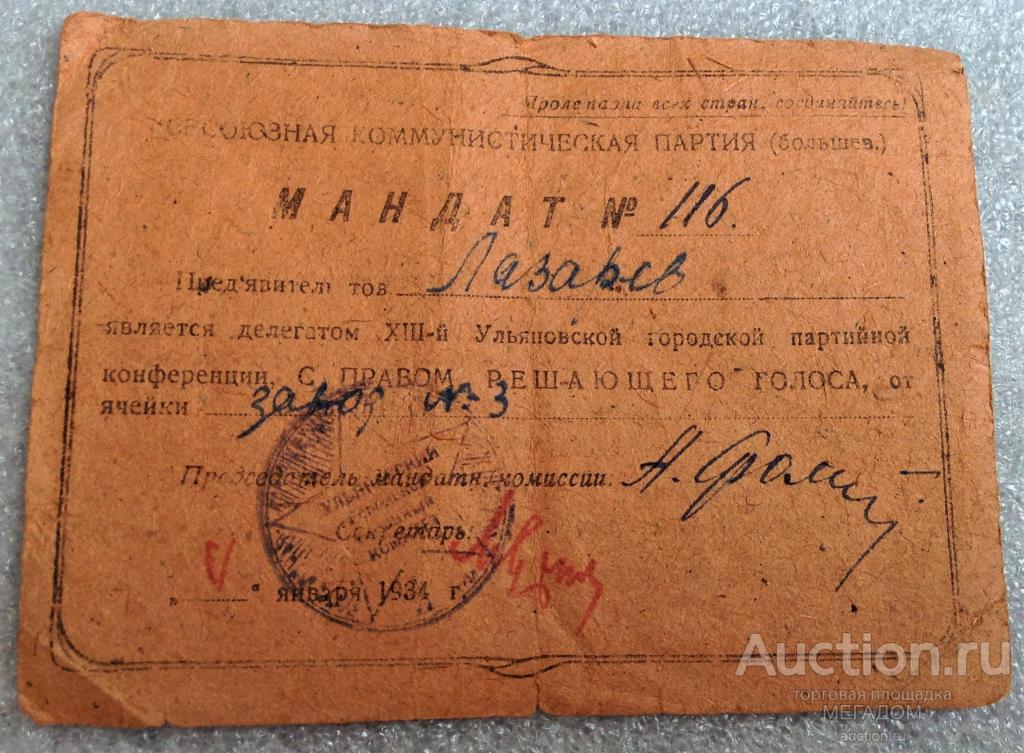 Пролетарии всех стран, соединяйтесь!
ВСЕСОЮЗНАЯ КОММУНИСТИЧЕСКАЯ ПАРТИЯ (большев.)
МАНДАТ № 116.
Пред'явитель тов. Лазарев
является делегатом XIII-й Ульяновской городской партийной
конференции, С ПРАВОМ РЕШАЮЩЕГО ГОЛОСА, от
ячейки завод № 3
Председатель мандатн. комиссии
Секретарь
" " января 1934 г.
Auction.ru
торговая площадка
МЕГАДОМ
auction.ru